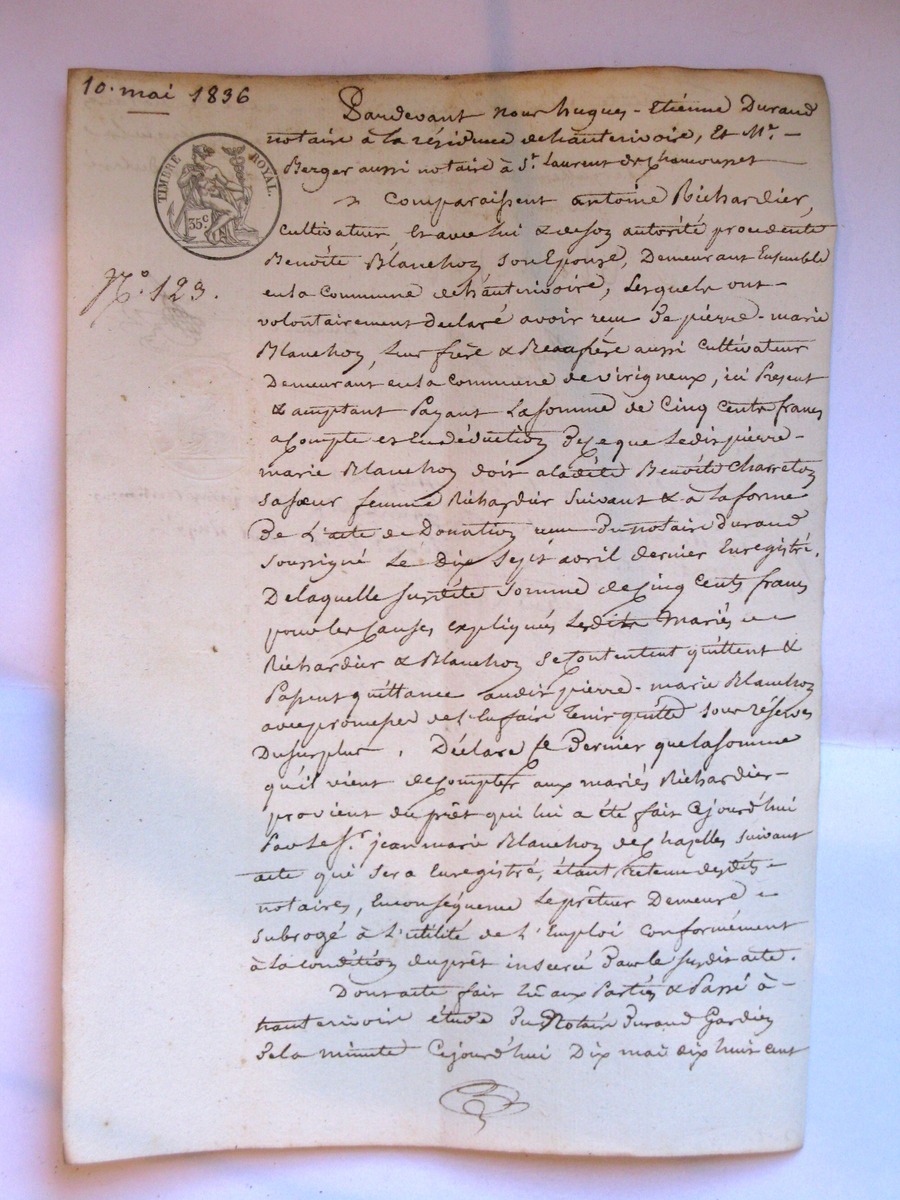 10. mai 1836
Pardevant nous hugues-Etiénne Durand
notaire à la résidence de hauterivoire, Et Mr. -
Berger aussi notaire à St. Laurent de Chamousset
TIMBRE ROYAL.
35 c.
Comparaissent antoine Richardier,
cultivateur Et avec lui & de son autorité procedente
Benoîte Blanchon son Epouse, Demeurant Ensemble
N° 123.
en la Commune de hauterivoire, Lesquels ont -
volontairement declaré avoir recu De pierre-marie
Blanchon, leur frère & Beaufrère aussi Cultivateur
Demeurant en la Commune de virigneux, ici Present
& acceptant Payant La somme de Cinq Cents francs
a Compte et En déduction De Ce que Ledit pierre-
marie Blanchon doit a ladite Benoîte Charreton
sa sœur femme Richardier suivant & à la forme
De L'acte de Donation recu Du notaire Durand
soussigné Le Dix Sept avril dernier Enregistré.
De laquelle susdite somme de Cinq Cents francs
pour les Causes expliqués Lesdits Mariés
Richardier & Blanchon se Contentent quittent &
Passent quittance audit pierre-marie Blanchon
avec promesse de l'En faire Tenir quitte sous réserves
Du surplus. Déclare Ce Dernier que la somme
qu'il vient de Compter aux mariés Richardier -
provient du prêt qui lui a été fait Cejourd'hui
Par Le Sr. jean marie Blanchon de Chazelles suivant
acte qui sera Enregistré, étant retenu desdits -
notaires, En conséquence Le prêteur Demeure
subrogé à L'utilité de L'Emploi Conformément
à la condition du prêt inserée Par le susdit acte.
Dont acte fait lû aux Parties & Passé à -
hauterivoire étude Du Notaire Durand Gardien
De la minute Cejourd'hui Dix mai dix huit cent